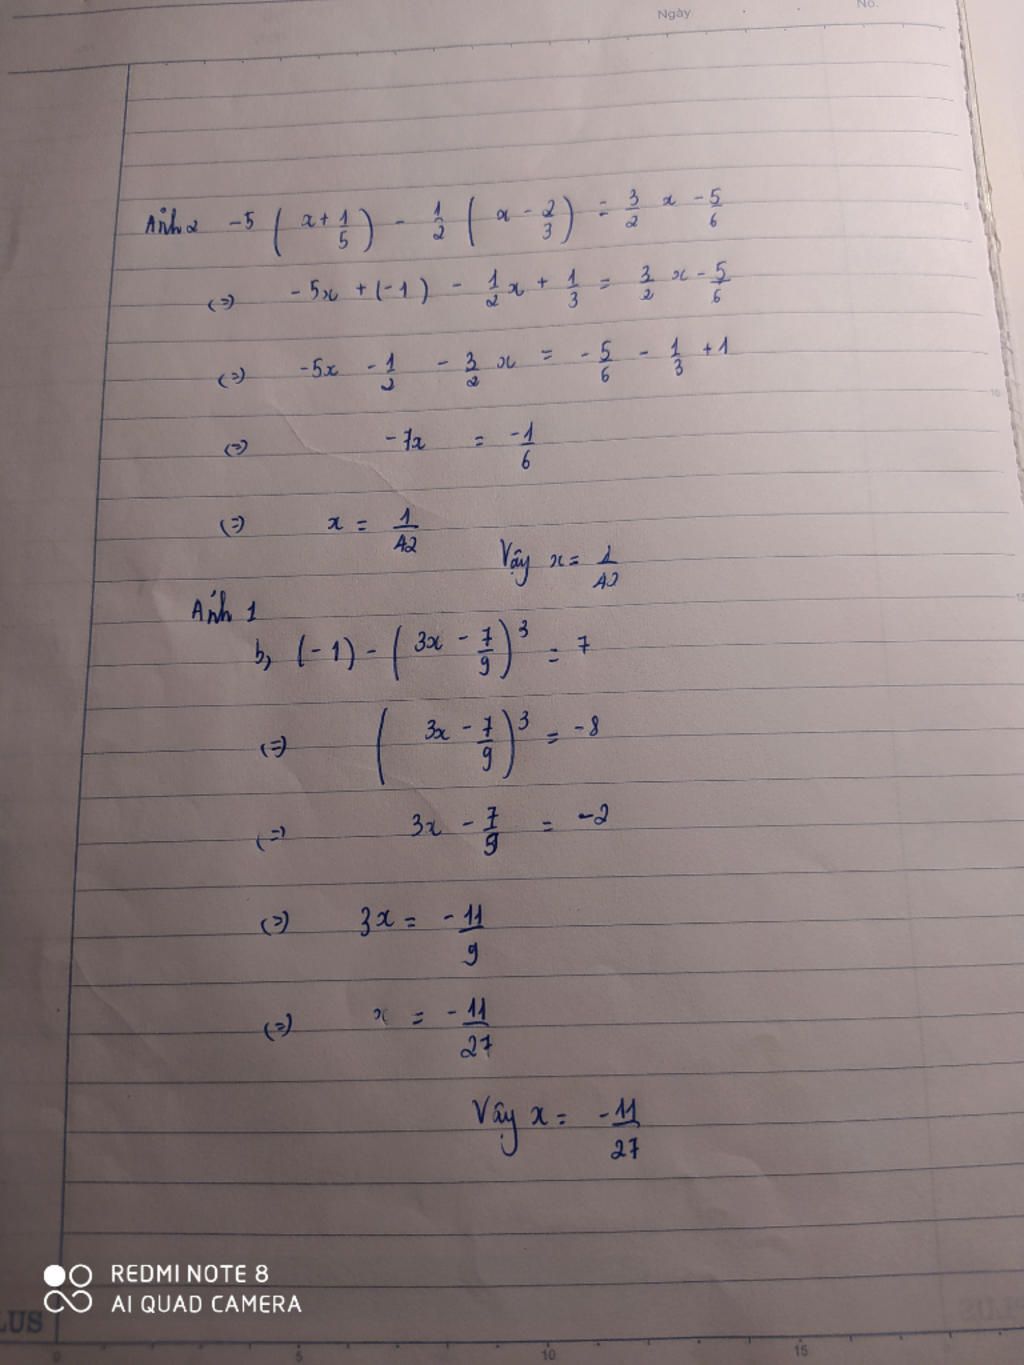 Ngày No.
Ảnh 2 -5 ( x + 1/5 ) - 1/2 ( x - 2/3 ) = 3/2 x - 5/6
(=) -5x + (-1) - 1/2 x + 1/3 = 3/2 x - 5/6
(=) -5x - 1/2 - 3/2 x = -5/6 - 1/3 + 1
(=) -7x = -1/6
(=) x = 1/42
Vậy x = 1/42
Ảnh 1
b, (-1) - ( 3x - 7/9 )³ = 7
(=) ( 3x - 7/9 )³ = -8
(=) 3x - 7/9 = -2
(=) 3x = -11/9
(=) x = -11/27
Vậy x = -11/27
REDMI NOTE 8
AI QUAD CAMERA
LUS
0 5 10 15